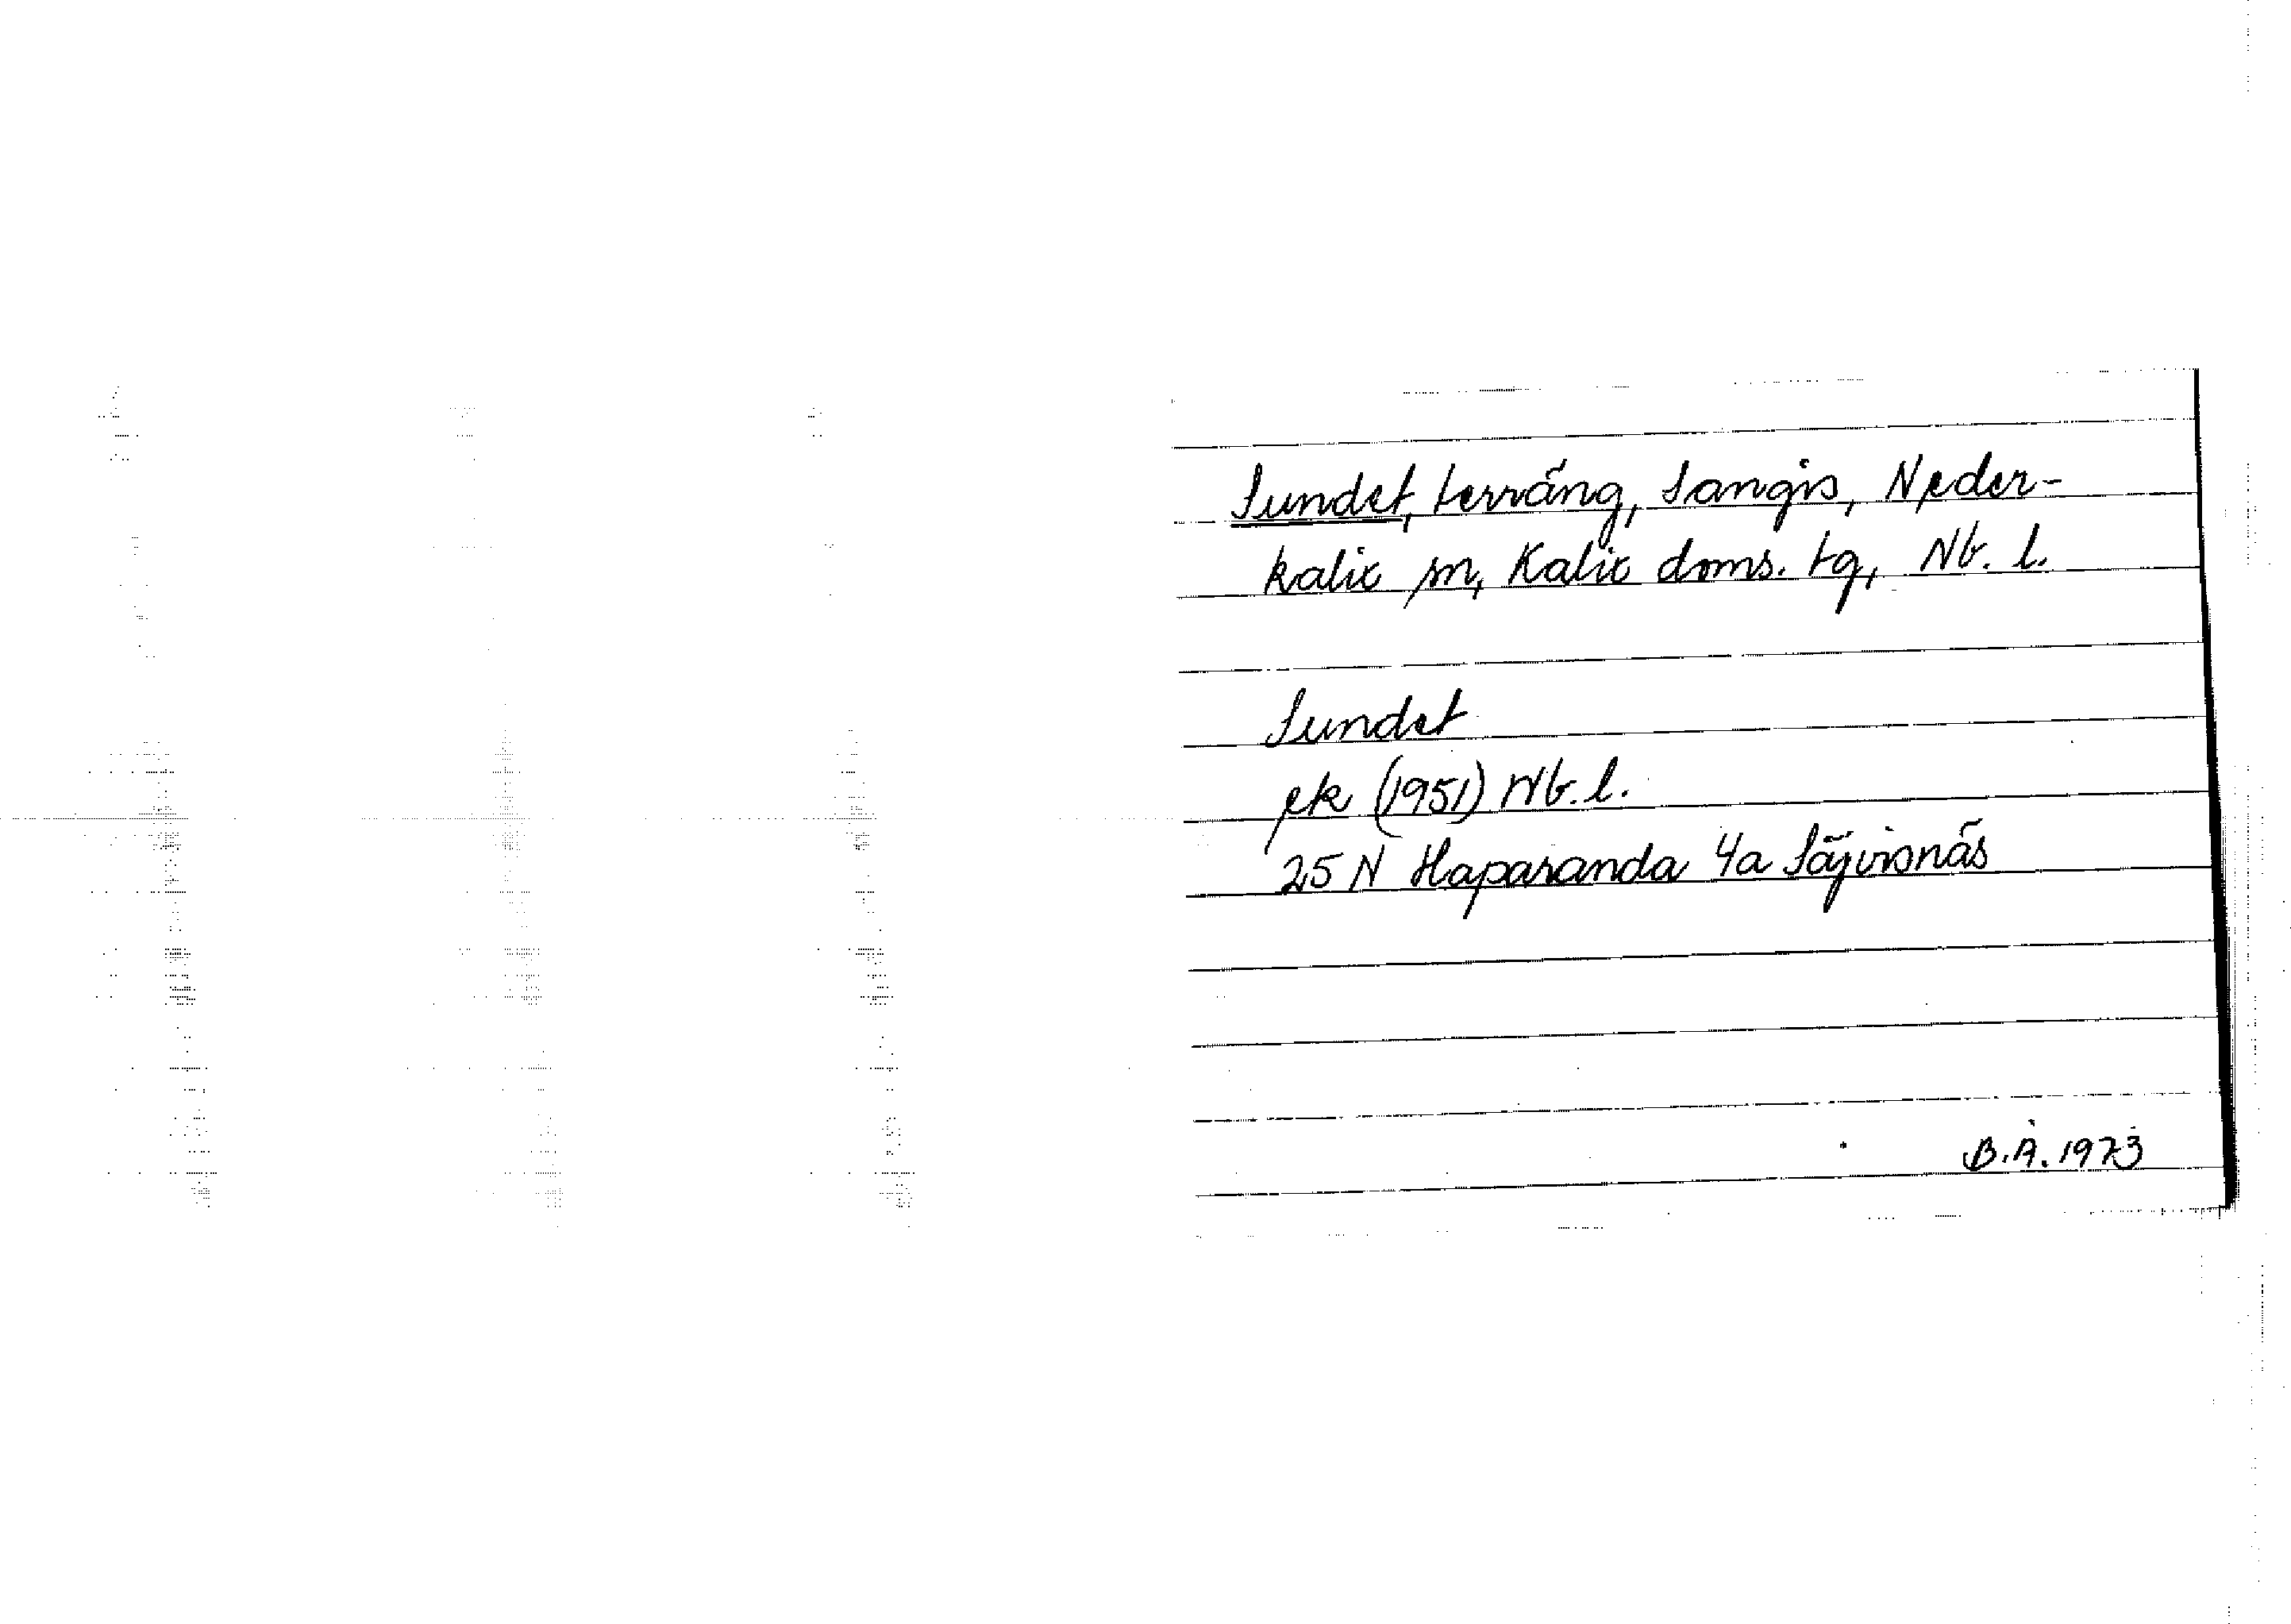 Sundet, terräng, Sangis, Neder-
kalix sn, Kalix doms. tg, Nb. l.
Sundet
ek (1951) Nb. l.
25 N Haparanda 4a Säjvisnäs
B.Å. 1973